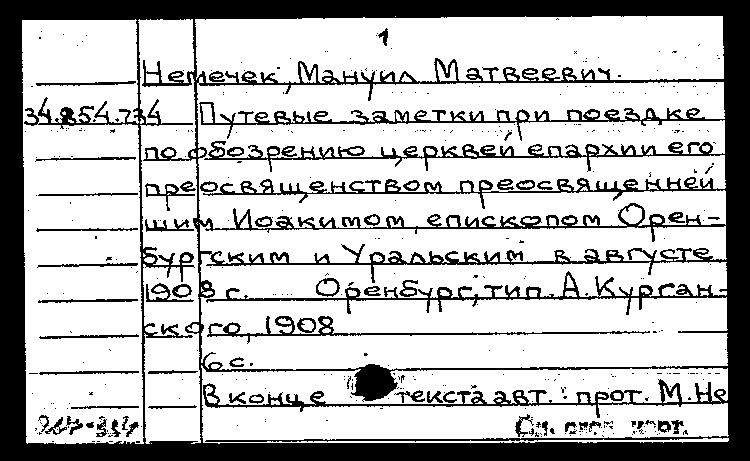 1
Немечек, Мануил Матвеевич.
34.254.734 Путевые заметки при поездке
по обозрению церквей епархии его
преосвященством преосвященней
шим Иоакимом, епископом Орен-
бургским и Уральским в августе
1908 г. Оренбург, тип. А. Курган-
ского, 1908
6 с.
В конце текста авт.: прот. М. Не
См. след. карт.